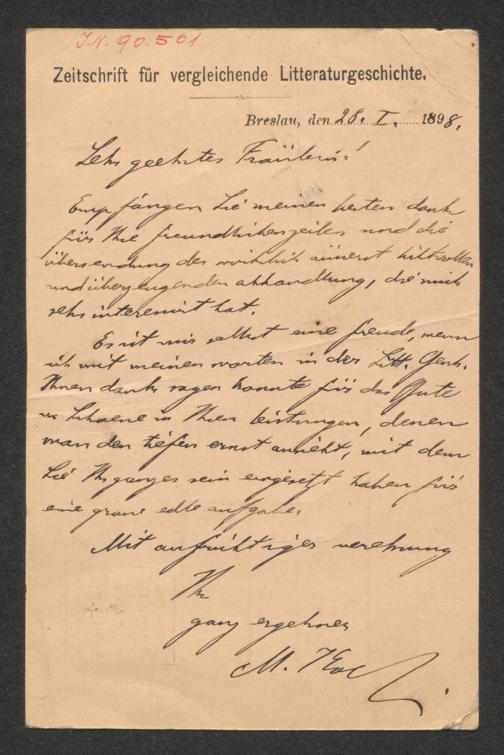 J.N. 90.561
Zeitschrift für vergleichende Litteraturgeschichte.
Breslau, den 28. I. 1898.
Sehr geehrtes Fräulein!
Empfangen Sie meinen besten dank
für Ihre freundlichen zeilen und die
übersendung der wirklich äusserst
und überzeugenden abhandlung, die mich
sehr interessirt hat.
Es ist mir selbst eine freude, wenn
ich mit meinen worten in der Litt. Gesch.
Ihnen dank sagen konnte für das Gute
u. Schoene in Ihren leistungen, denen
man den tiefen ernst ansieht, mit dem
Sie Ihr ganzes sein eingesetzt haben für
eine grosse edle aufgabe.
Mit aufrichtiger verehrung
Ihr
ganz ergebner
M. Koch